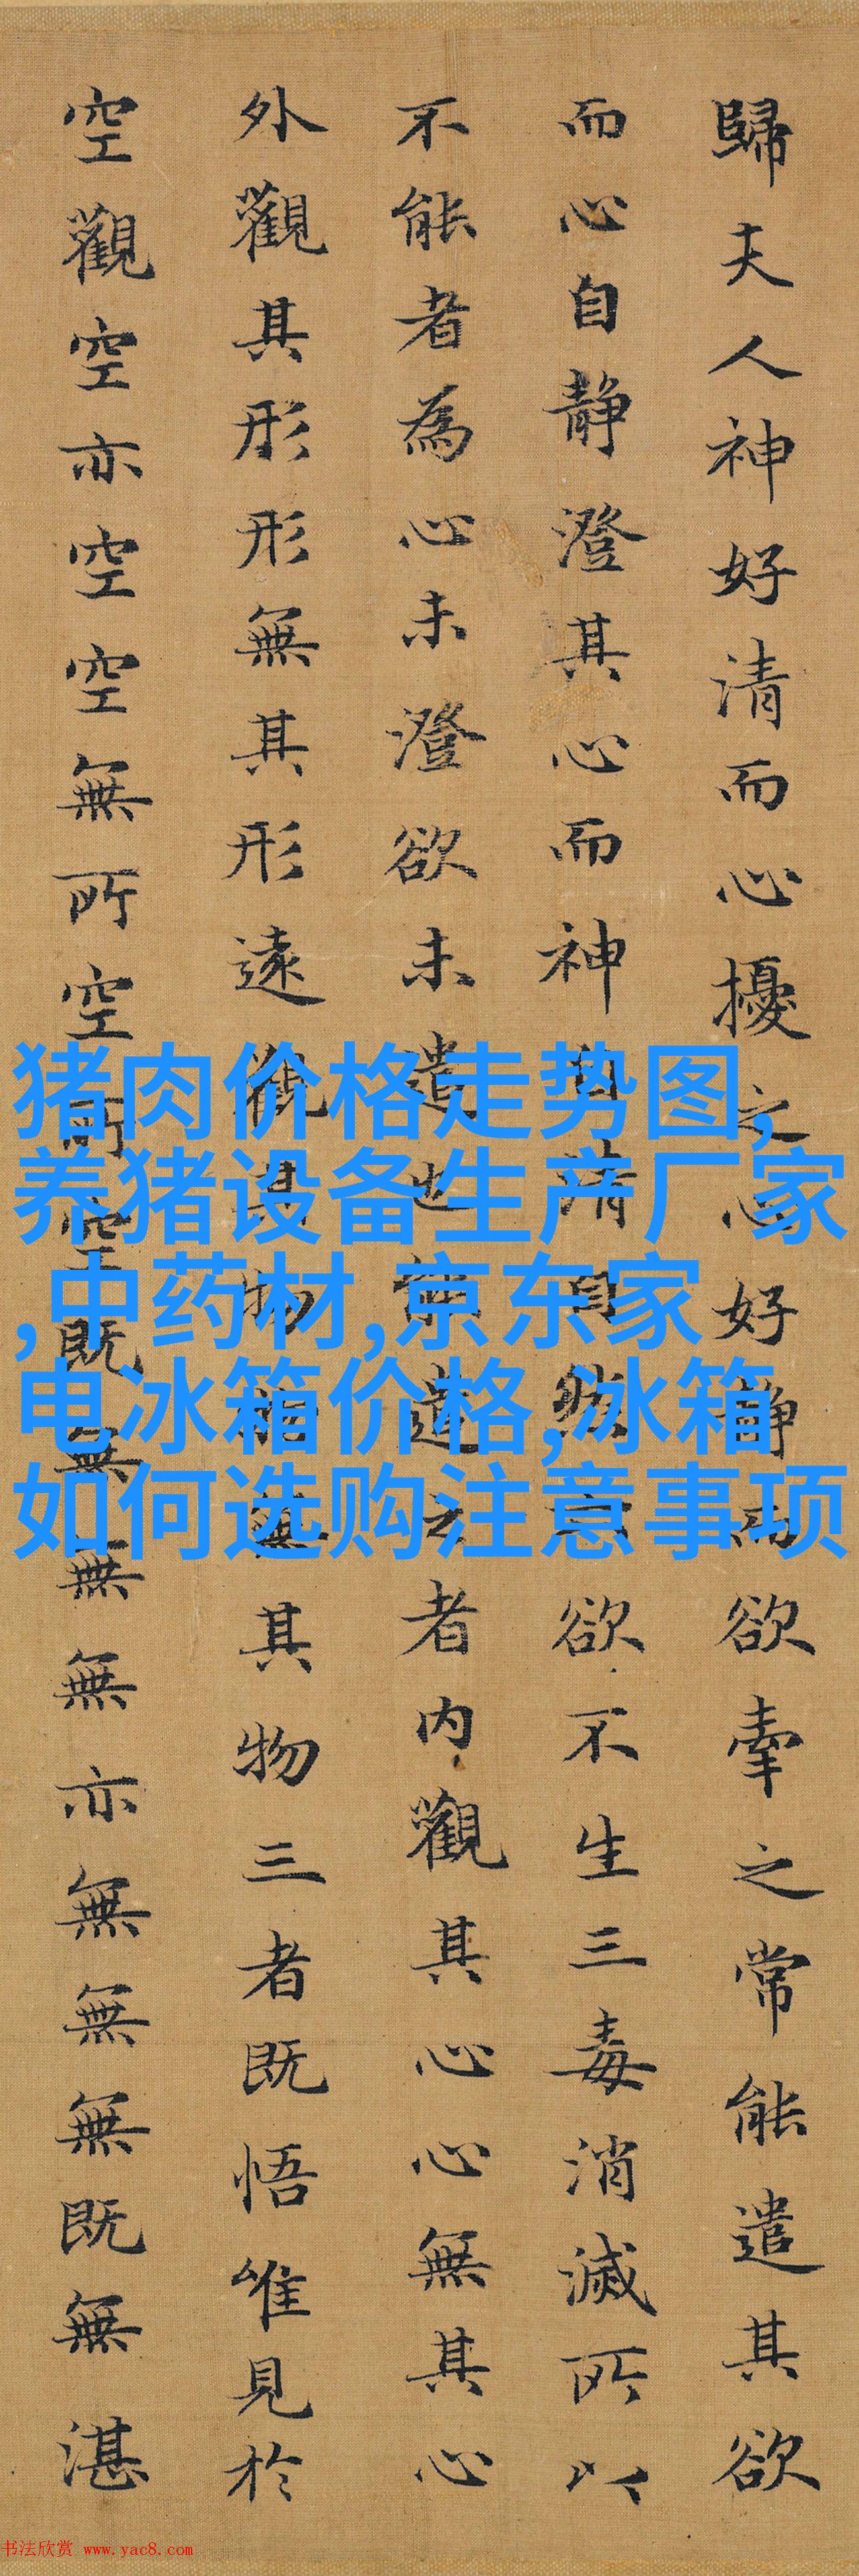 歸夫人神好清而心擾之心好静而欲牽之常能遣其欲
而心自静澄其心而神自清自然六欲不生三毒消滅所以
不能者為心未澄欲未遣也能遣之者内觀其心心無其心
外觀其形形無其形遠觀其物物無其物三者既悟唯見於
空觀空亦空空無所空所空既無無無亦無無無既無湛
猪肉价格走势图,
养猪设备生产厂家
,中药材,京东家
电冰箱价格,冰箱
如何选购注意事项
书法欣赏 www.yac8.com